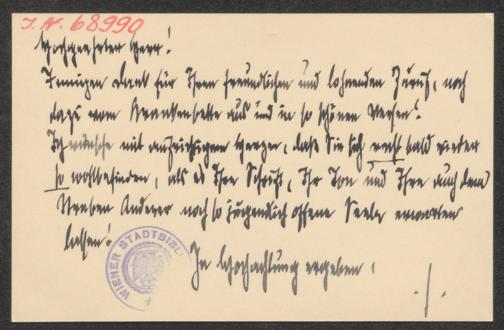 J. N. 68990
Hochgeehrter Herr!
Innigen Dank für Ihren freundlichen und lohnenden Zuruf, noch
dazu vom Krankenbette aus und in so schönen Versen!
Ich wünsche mit aufrichtigem Herzen, daß Sie sich recht bald wieder
so wohlbefinden, als es Ihre Schrift, Ihr Ton und Ihre auch dem
Streben Anderer noch so jugendlich offene Seele erwarten
lassen!
In Hochachtung ergeben
WIENER STADTBIBL